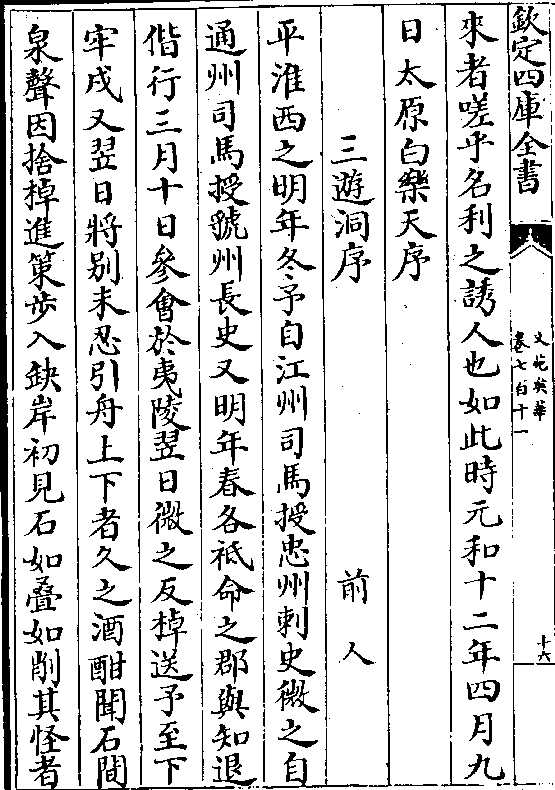 欽定四庫全書
文苑英華
卷七百十一
十六
來者嗟乎名利之誘人也如此時元和十二年四月九
日太原白樂天序
三遊洞序
前人
平淮西之明年冬予自江州司馬授忠州刺史微之自
通州司馬授虢州長史又明年春各祗命之郡與知退
偕行三月十日參會於夷陵翌日微之反棹送予至下
牢戍又翌日將别未忍引舟上下者久之酒酣聞石間
泉聲因捨棹進策步入缺岸初見石如疊如削其怪者